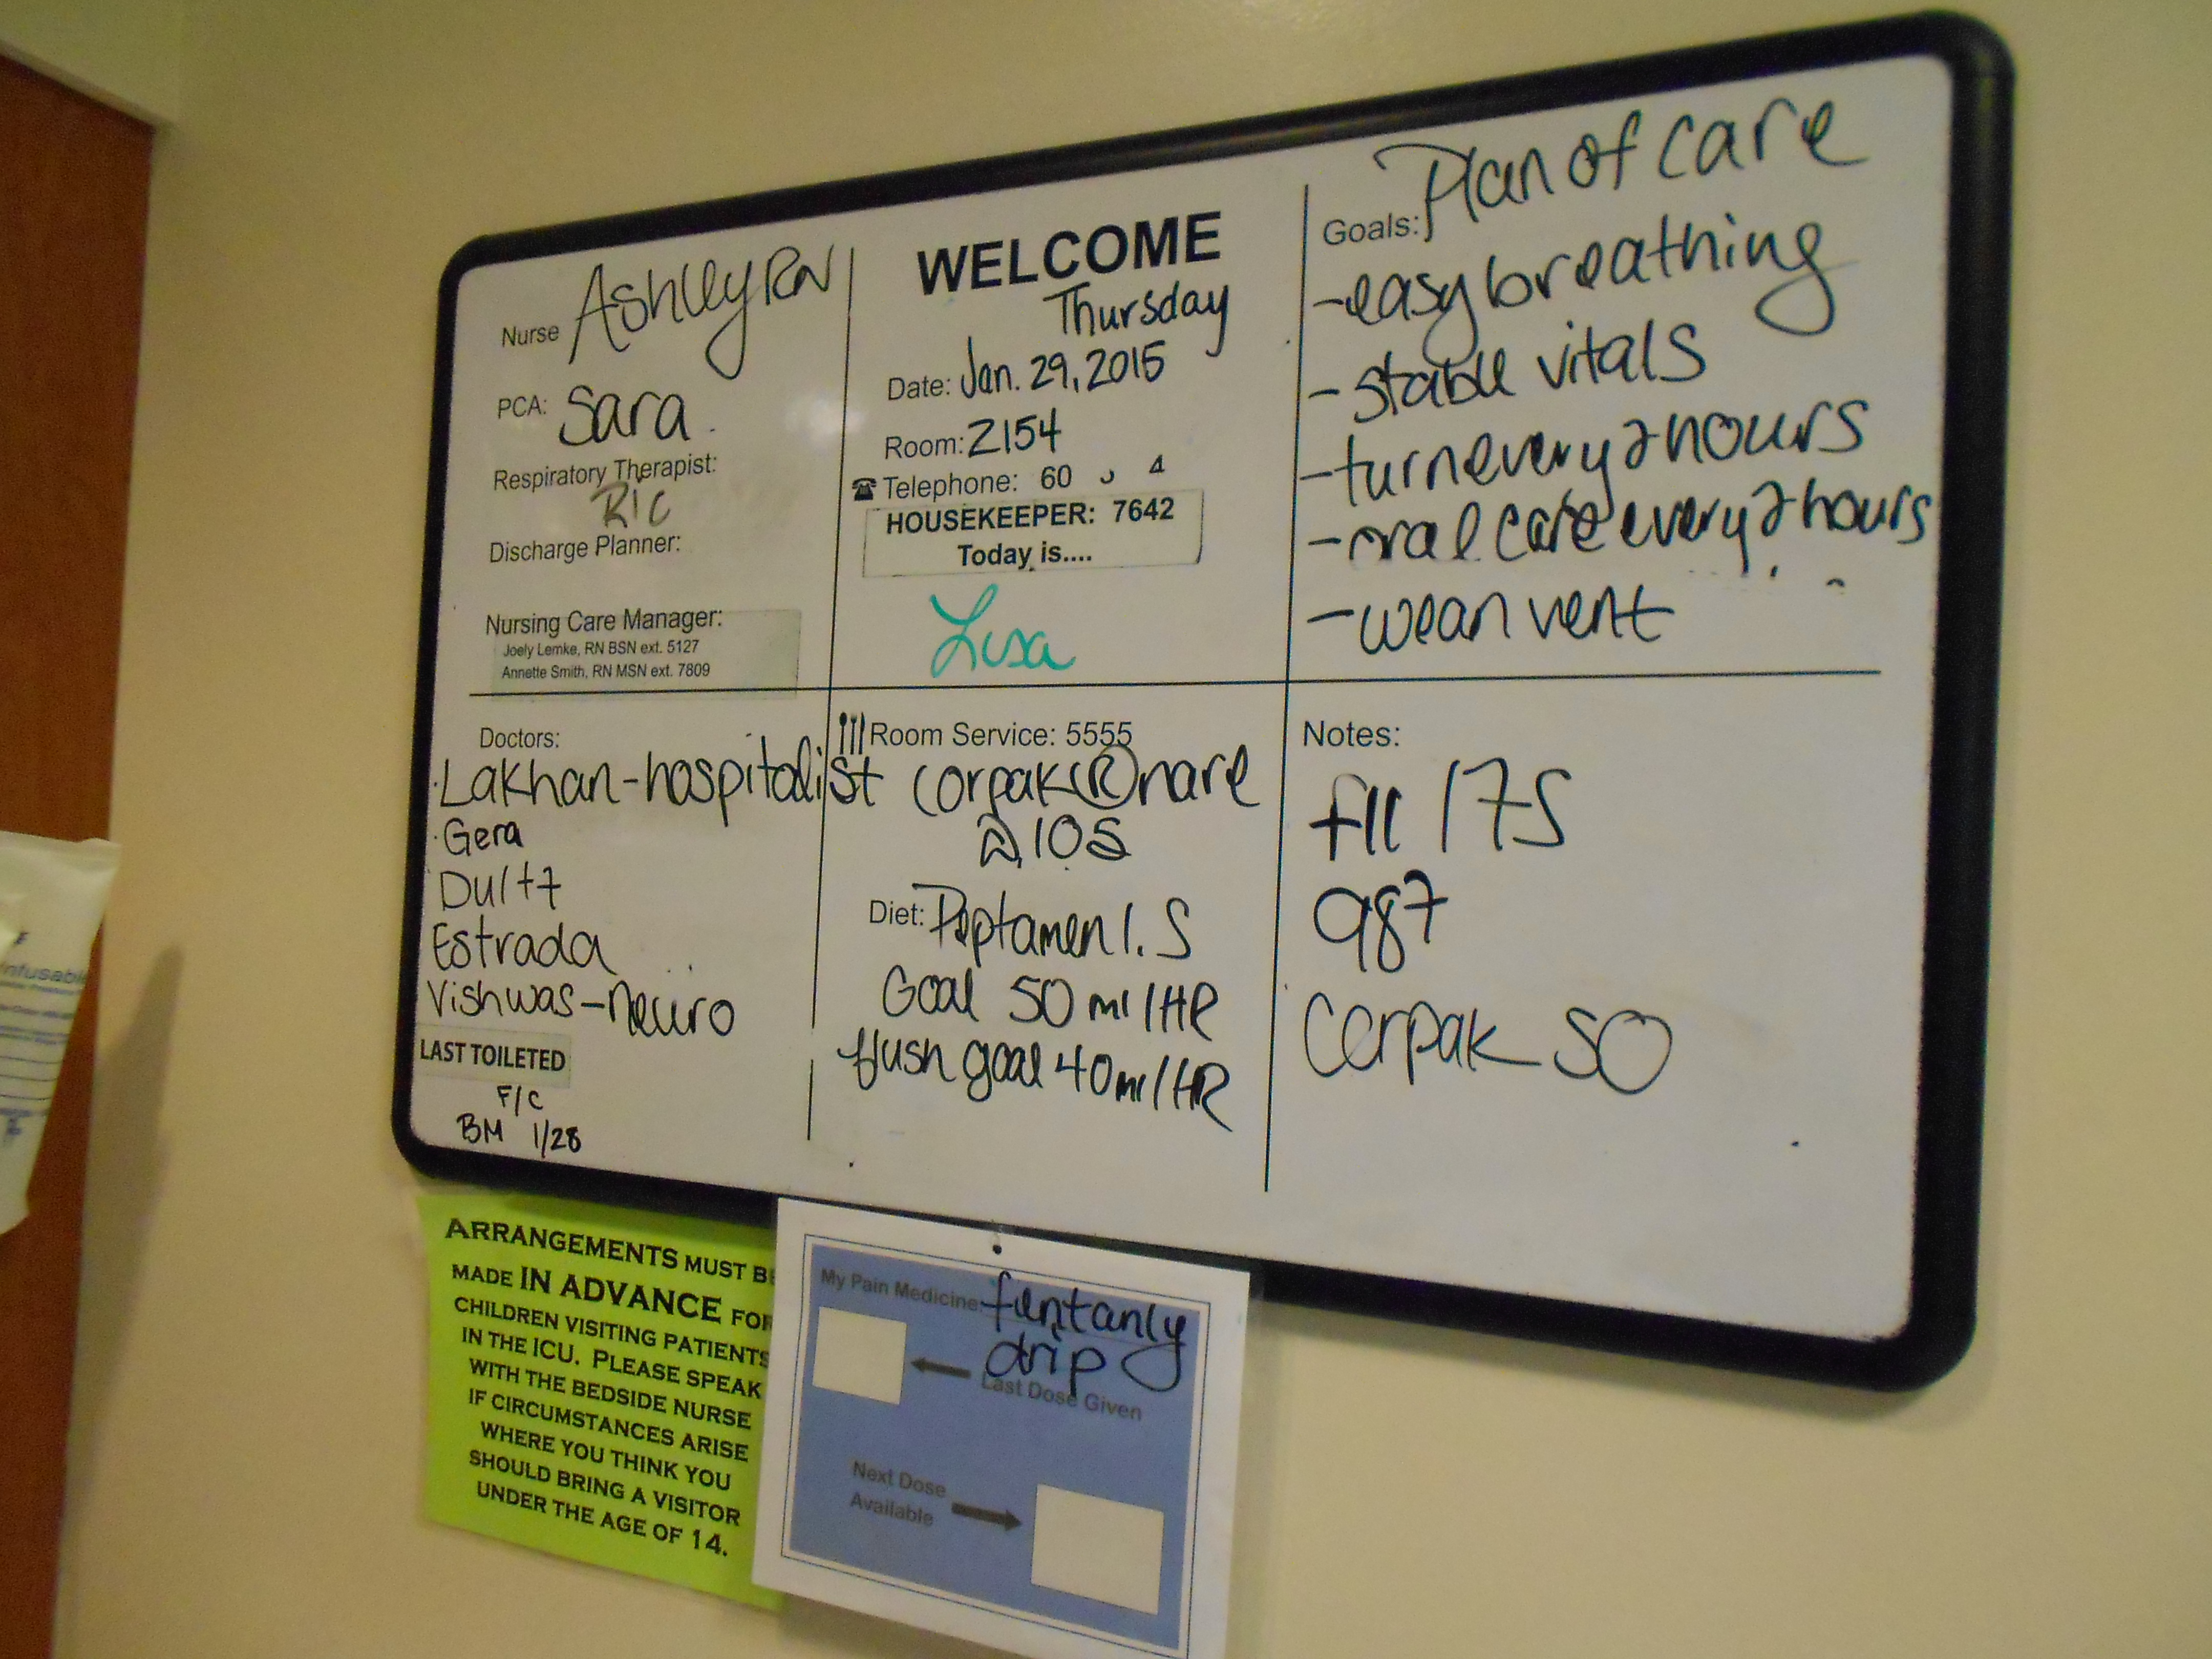 Nurse Ashley RN
PCA: Sara
Respiratory Therapist:
Ric
Discharge Planner:
Nursing Care Manager:
Joely Lemke, RN BSN ext. 5127
Annette Smith, RN MSN ext. 7809
WELCOME
Thursday
Date: Jan. 29, 2015
Room: 2154
Telephone: 60 4
HOUSEKEEPER: 7642
Today is....
Lisa
Goals: Plan of care
- easy breathing
- stable vitals
- turn every 2 hours
- oral care every 2 hours
- wean vent
Doctors:
Lakhan - hospitalist
Gera
Estrada
Vishwas - Neuro
LAST TOILETED
F/C
BM 1/28
Room Service: 5555
Corpak Ⓡ nare
@ 105
Diet: Peptamen 1.5
Goal 50 ml/HR
flush goal 40 ml/HR
Notes:
175
987
Corpak 50
ARRANGEMENTS MUST BE
MADE IN ADVANCE FOR
CHILDREN VISITING PATIENTS
IN THE ICU. PLEASE SPEAK
WITH THE BEDSIDE NURSE
IF CIRCUMSTANCES ARISE
WHERE YOU THINK YOU
SHOULD BRING A VISITOR
UNDER THE AGE OF 14.
My Pain Medicine: fentanly
drip
Last Dose Given
Next Dose
Available